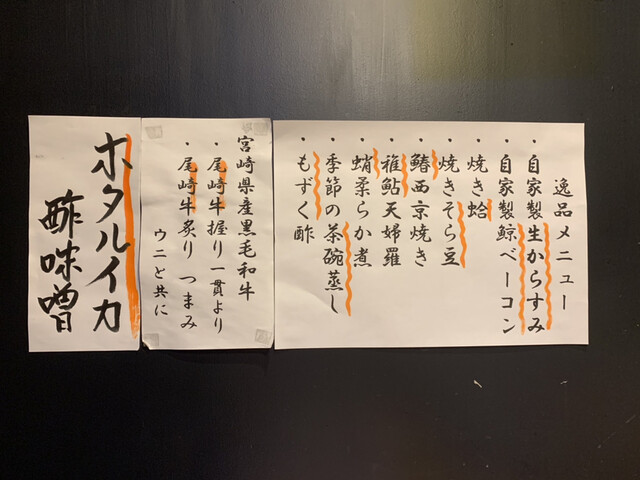 逸品メニュー
・自家製生からすみ
・自家製鯨ベーコン
・焼き蛤
・焼きそら豆
・鰆西京焼き
・稚鮎天婦羅
・蛸柔らか煮
・季節の茶碗蒸し
・もずく酢
宮崎県産黒毛和牛
・尾崎牛握り一貫より
・尾崎牛炙り つまみ
ウニと共に
ホタルイカ
酢味噌